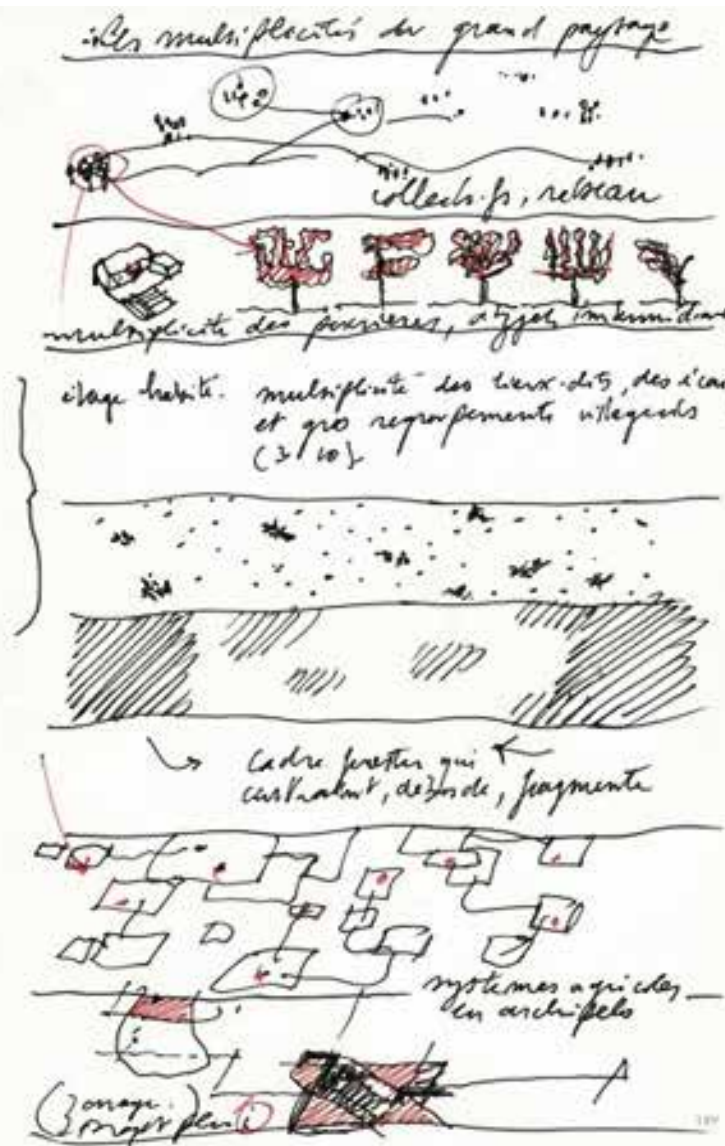 Les multiplicités du grand paysage
collectifs, réseau
multiplicité des , objets
étage habité. multiplicité des lieux-dits, des
et gros regroupements villageois
(3
cadre forestier qui
contraint, déborde, fragmente
systèmes agricoles
en archipels